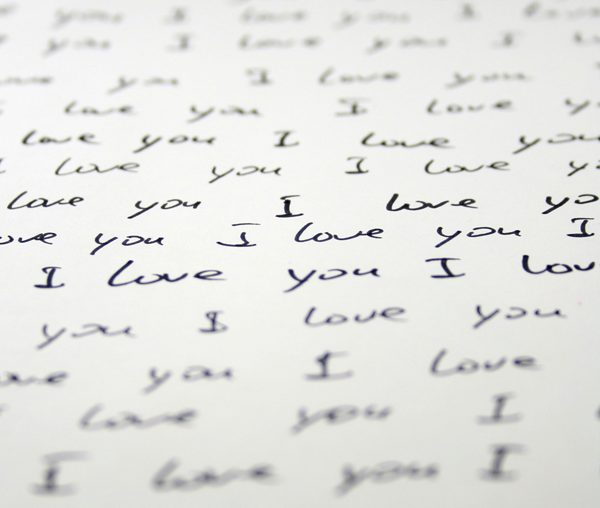 you I love
you I love you I
you I love you
love you I love
love you I love you
love you I love
love you I love
love you I love you I
I love you I
you I love you
you I love
love you I
I love you I